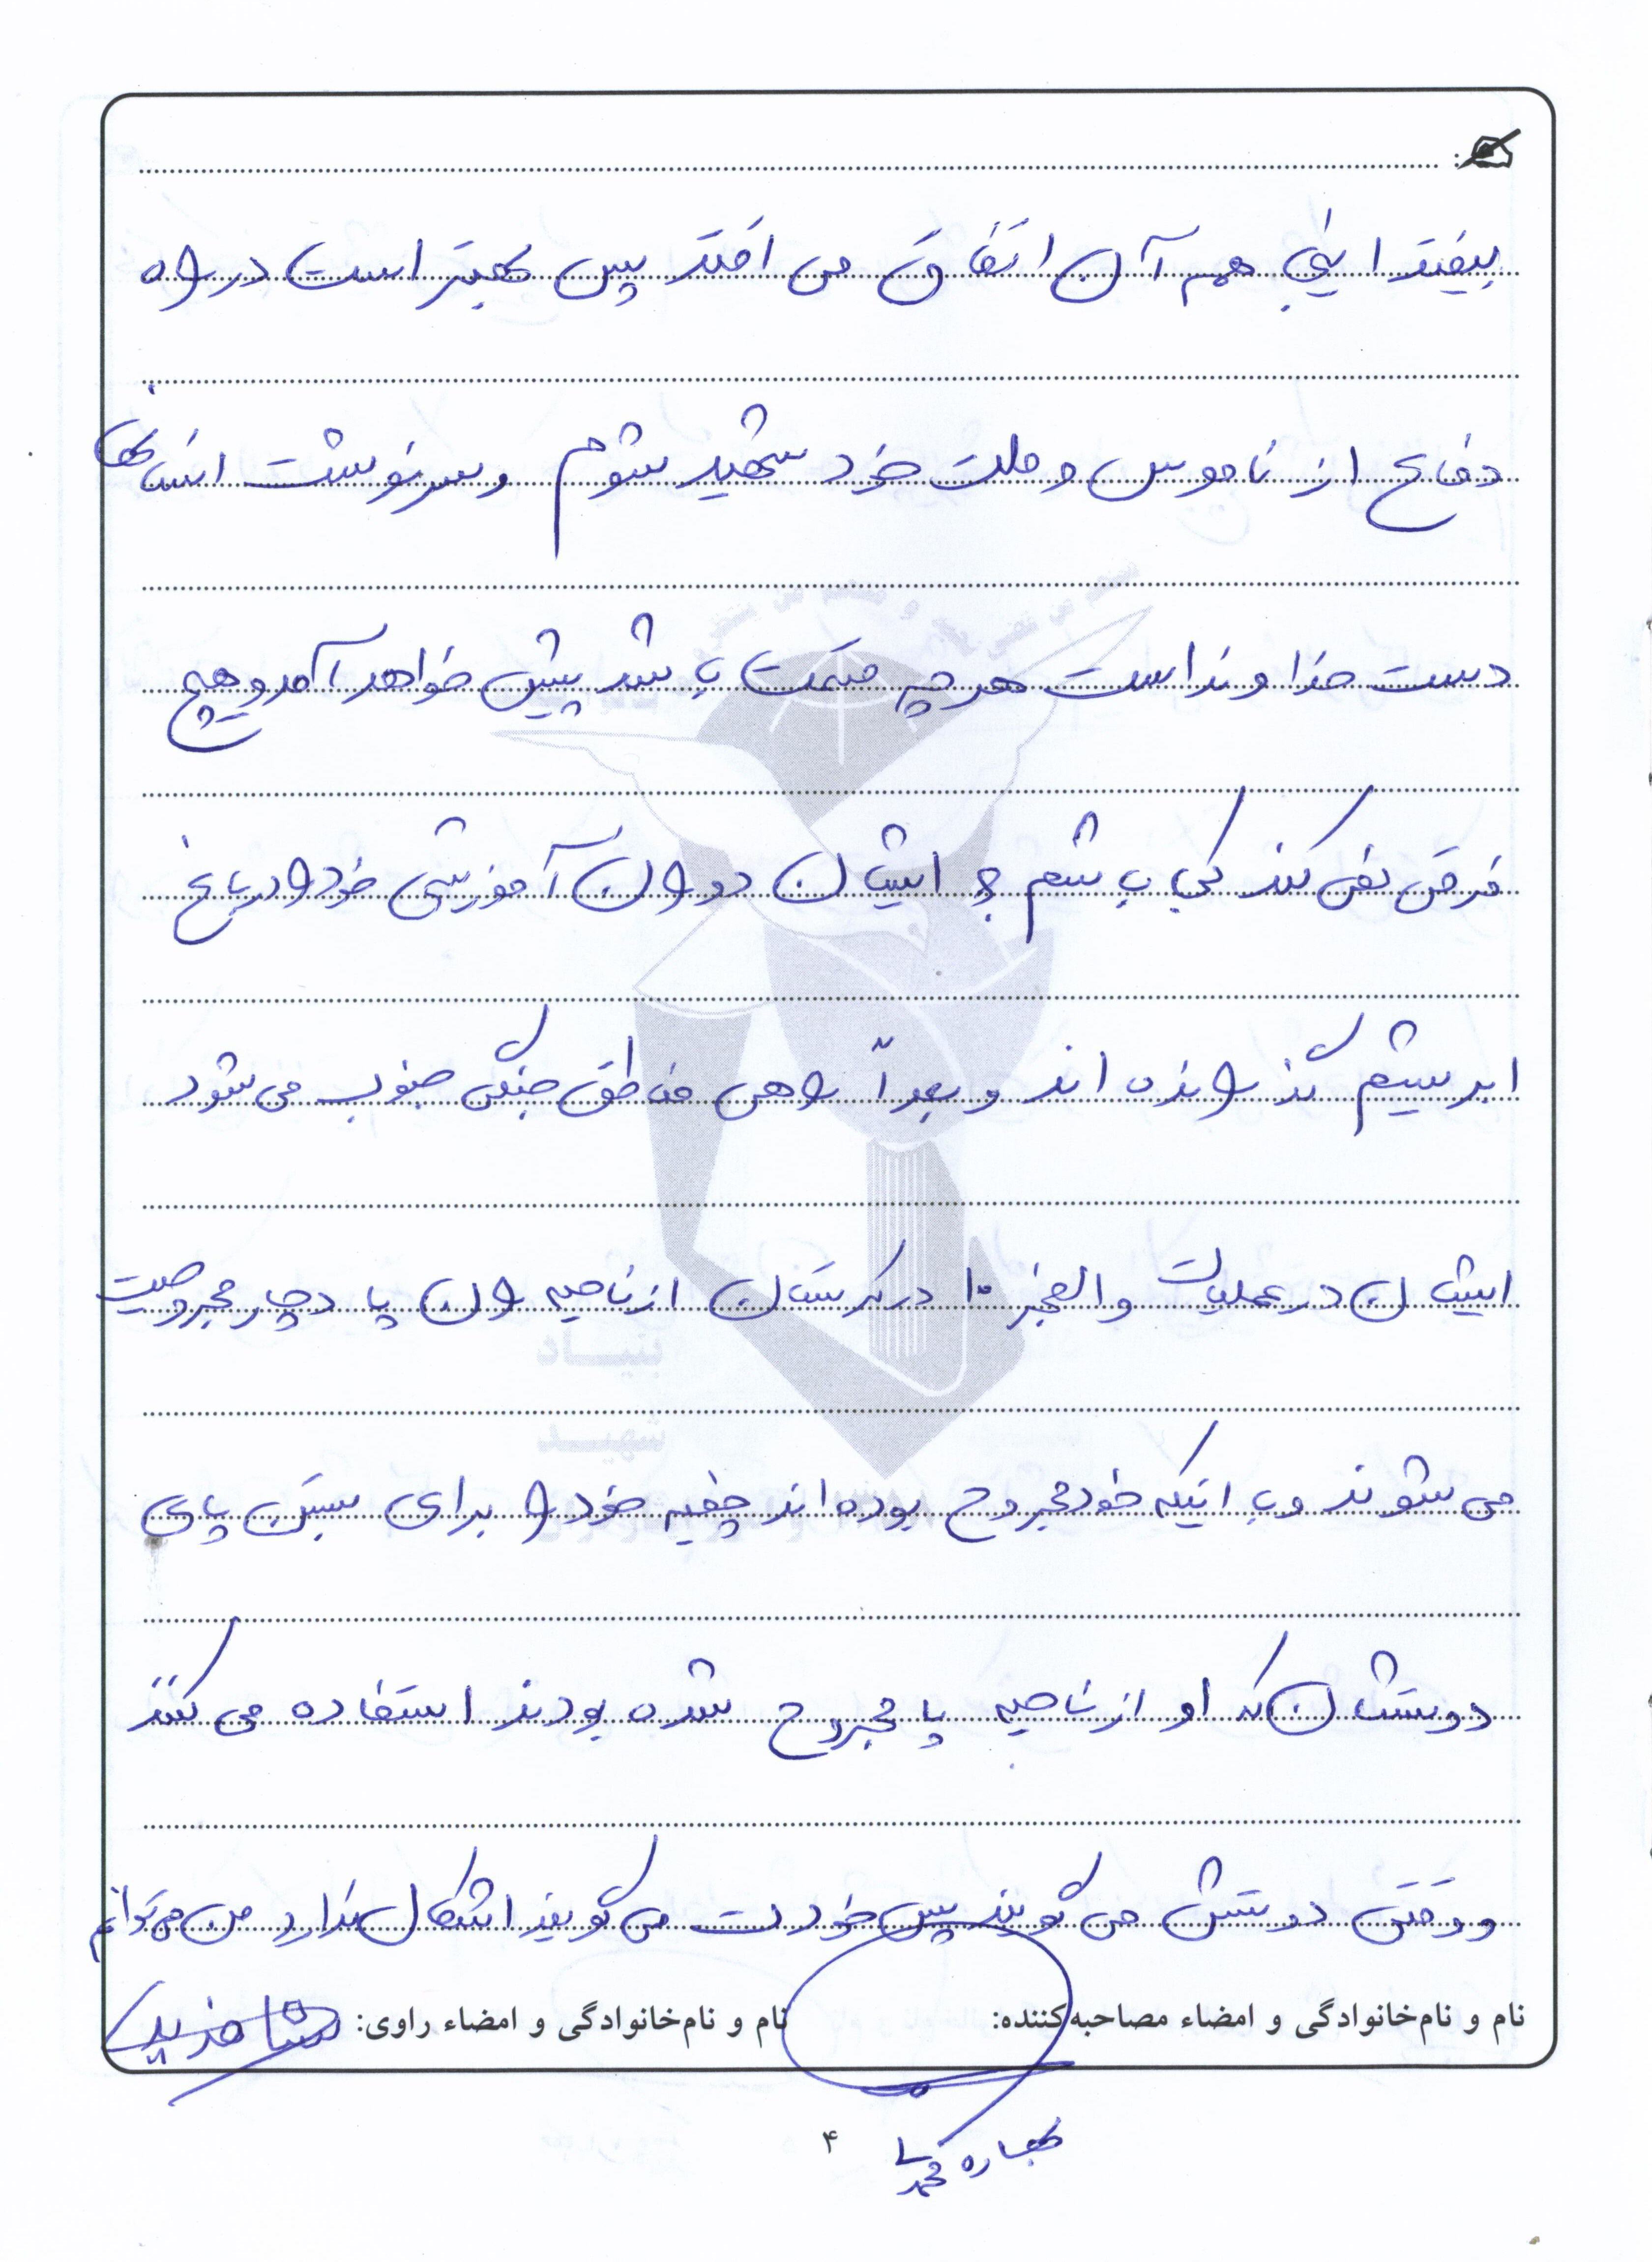 بیفتد اینجا هم آن اتفاق می افتد پس بهتر است در راه
دفاع از ناموس و ملت خود شهید شوم و سرنوشت انسانها
دست خداوند است هر چه قسمت باشد پیش خواهد آمد و هیچ
فرقی نمی کند کی باشم و ایشان دوران آموزشی خود را در باغ
ابریشم گذرانده اند و بعداً راهی مناطق جنگی جنوب می شود
ایشان در عملیات والفجر ۱۰ در کردستان از ناحیه ران پا دچار مجروحیت
می شوند و با اینکه خود مجروح بوده اند چفیه خود را برای بستن پای
دوستشان که او از ناحیه پا مجروح شده بودند استفاده می کنند
و وقتی دوستش می گویند پس خودت می گویند اشکال ندارد من می توانم
نام و نام‌خانوادگی و امضاء مصاحبه‌کننده: نام و نام‌خانوادگی و امضاء راوی:
۴
بنیاد
شهید